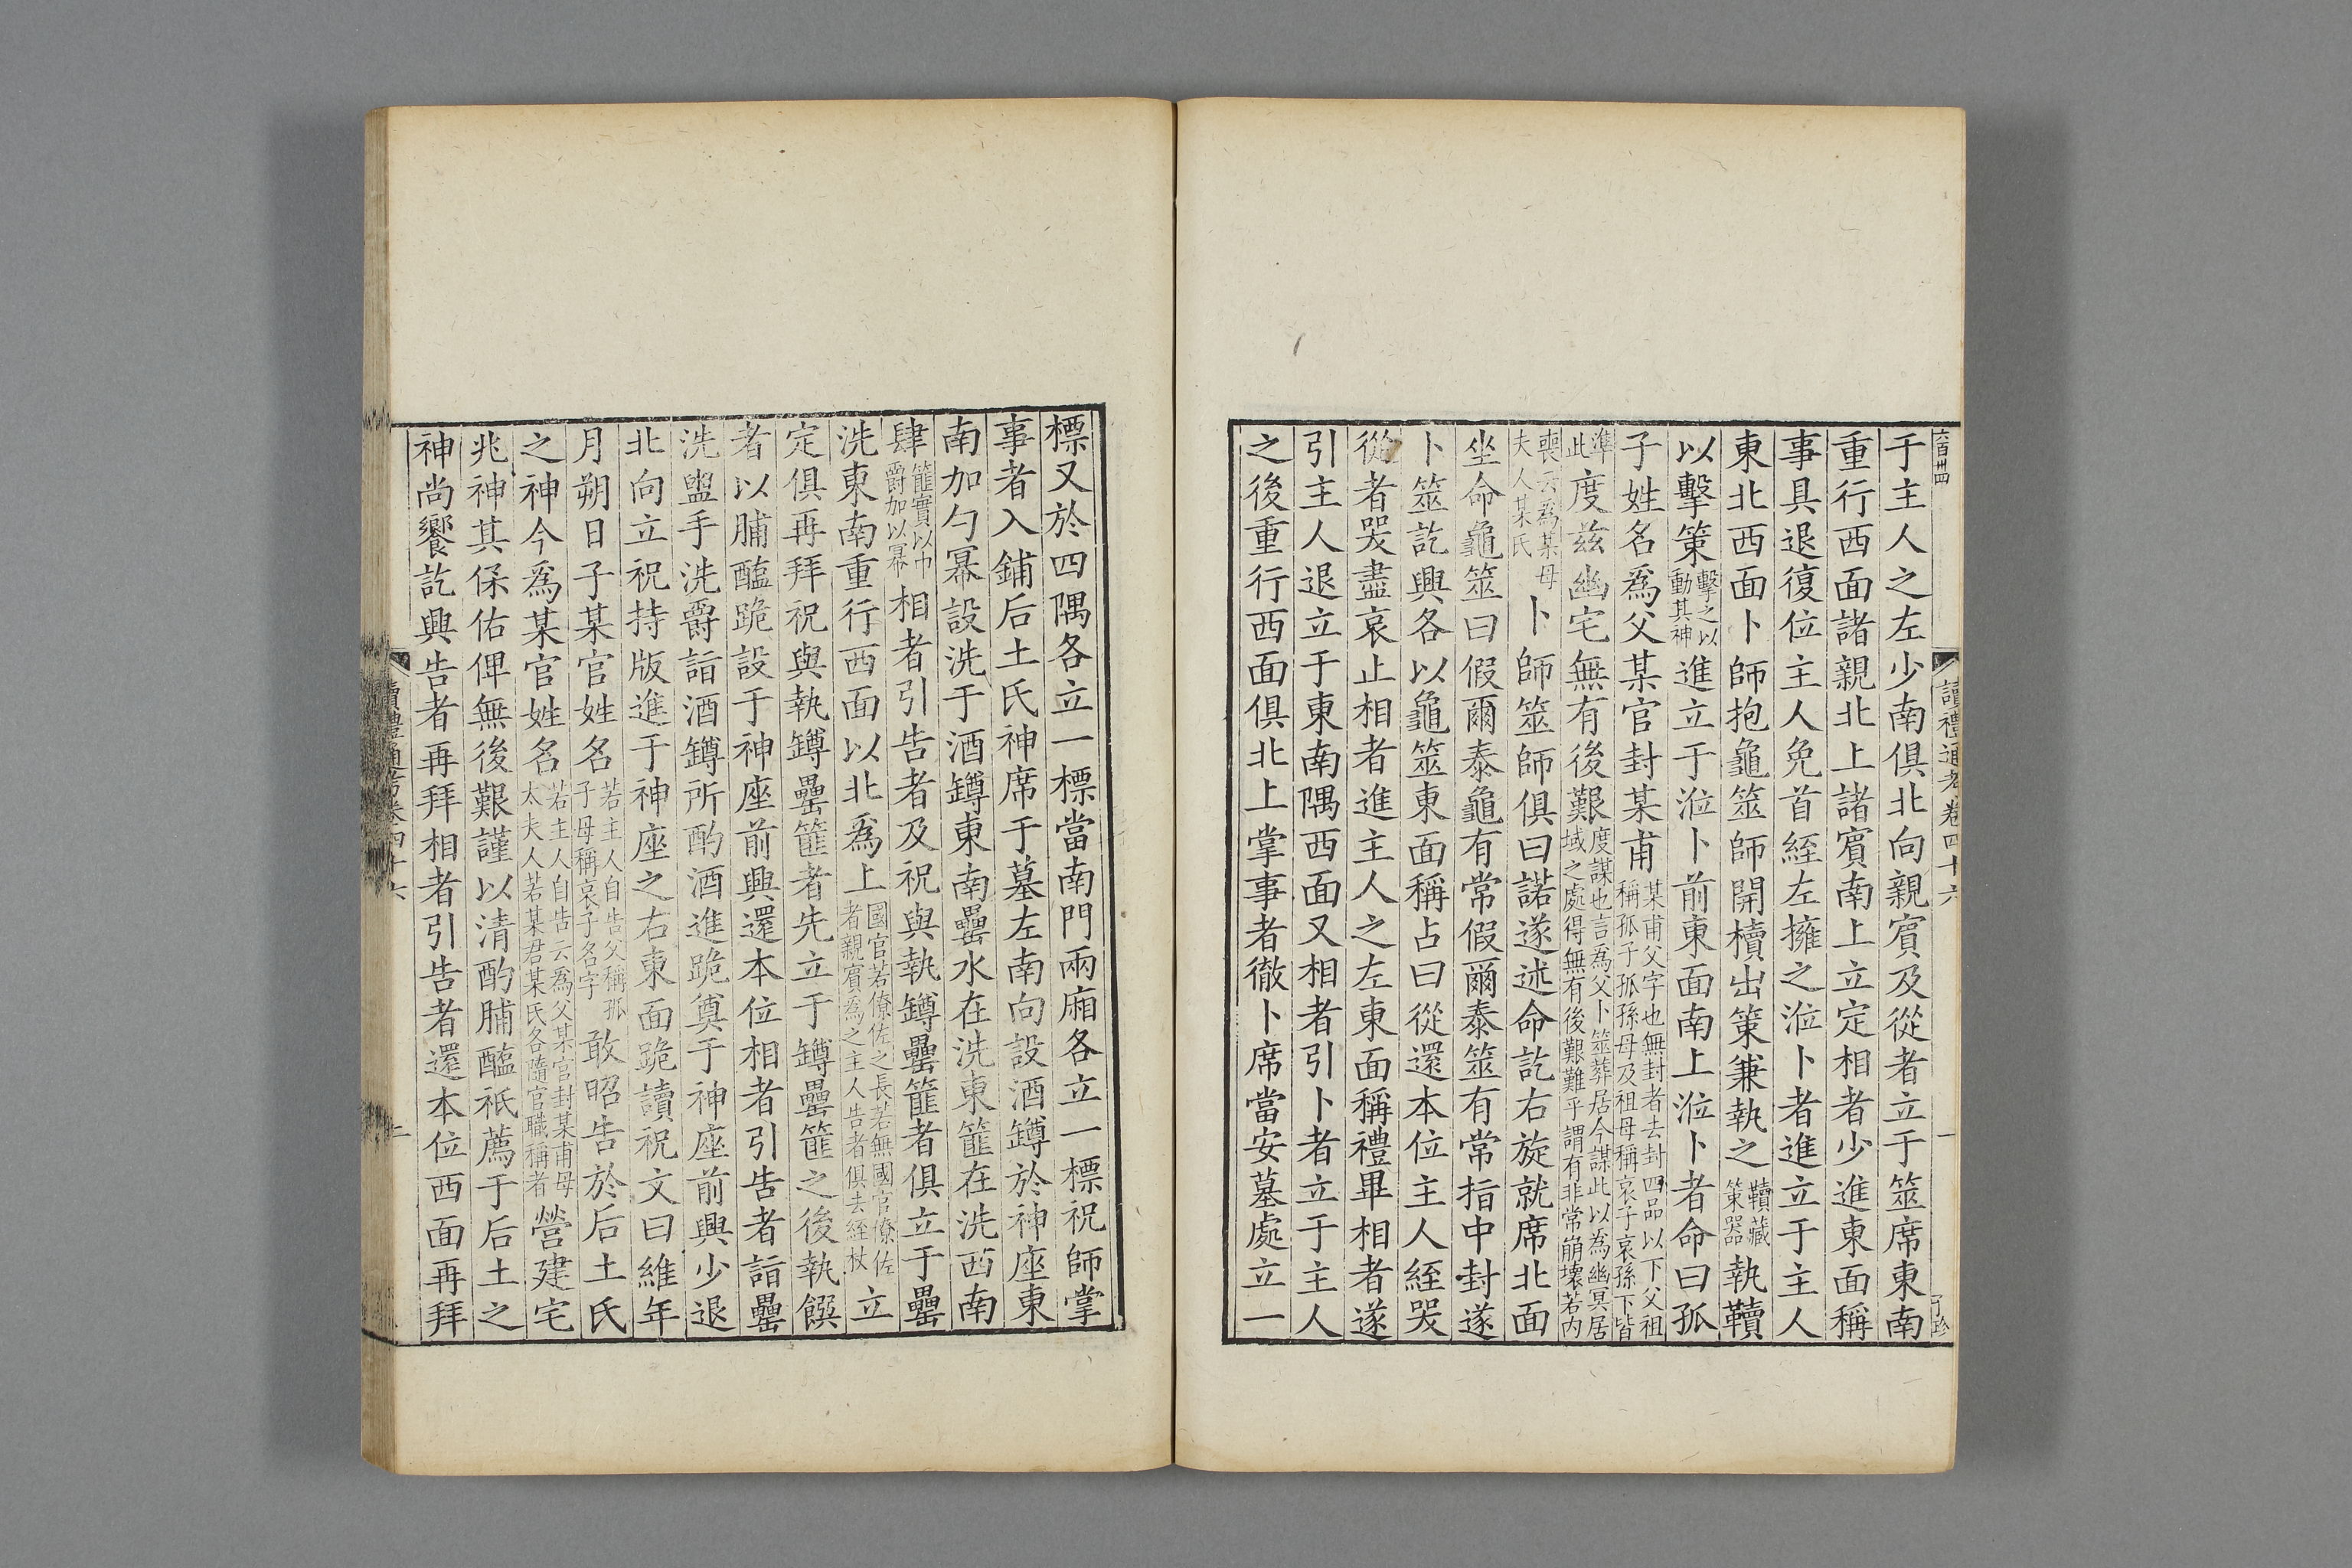 六百卌四
讀禮通考卷四十六
一
于主人之左少南俱北向親賓及從者立于筮席東南
重行西面諸親北上諸賓南上立定相者少進東面稱
事具退復位主人免首絰左擁之涖卜者進立于主人
東北西面卜師抱龜筮師開櫝出策兼執之韇藏策器執韇
以擊策擊之以動其神進立于涖卜前東面南上涖卜者命曰孤
子姓名爲父某官封某甫某甫父字也無封者去封四品以下父祖稱孤子孤孫母及祖母稱哀子哀孫下皆
準此度玆幽宅無有後艱度謀也言爲父卜筮葬居今謀此以為幽冥居域之處得無有後艱難乎謂有非常崩壞若內
喪云為某母夫人某氏卜師筮師俱曰諾遂述命訖右旋就席北面
坐命龜筮曰假爾泰龜有常假爾泰筮有常指中封遂
卜筮訖興各以龜筮東面稱占曰從還本位主人絰哭
從者哭盡哀止相者進主人之左東面稱禮畢相者遂
引主人退立于東南隅西面又相者引卜者立于主人
之後重行西面俱北上掌事者徹卜席當安墓處立一
標又於四隅各立一標當南門兩廂各立一標祝師掌
事者入鋪后土氏神席于墓左南向設酒罇於神座東
南加勺冪設洗于酒罇東南罍水在洗東篚在洗西南
肆篚實以巾爵加以冪相者引告者及祝與執罇罍篚者俱立于罍
洗東南重行西面以北爲上國官若僚佐之長若無國官僚佐者親賓為之主人告者俱去絰杖立
定俱再拜祝與執罇罍篚者先立于罇罍篚之後執饌
者以脯醢跪設于神座前興還本位相者引告者詣罍
洗盥手洗爵詣酒罇所酌酒進跪奠于神座前興少退
北向立祝持版進于神座之右東面跪讀祝文曰維年
月朔日子某官姓名若主人自告父稱孤子母稱哀子名字敢昭告於后土氏
之神今爲某官姓名若主人自告云為父某官封某甫母太夫人若某君某氏各隨官職稱者營建宅
兆神其保佑俾無後艱謹以清酌脯醢祇薦于后土之
神尚饗訖興告者再拜相者引告者還本位西面再拜